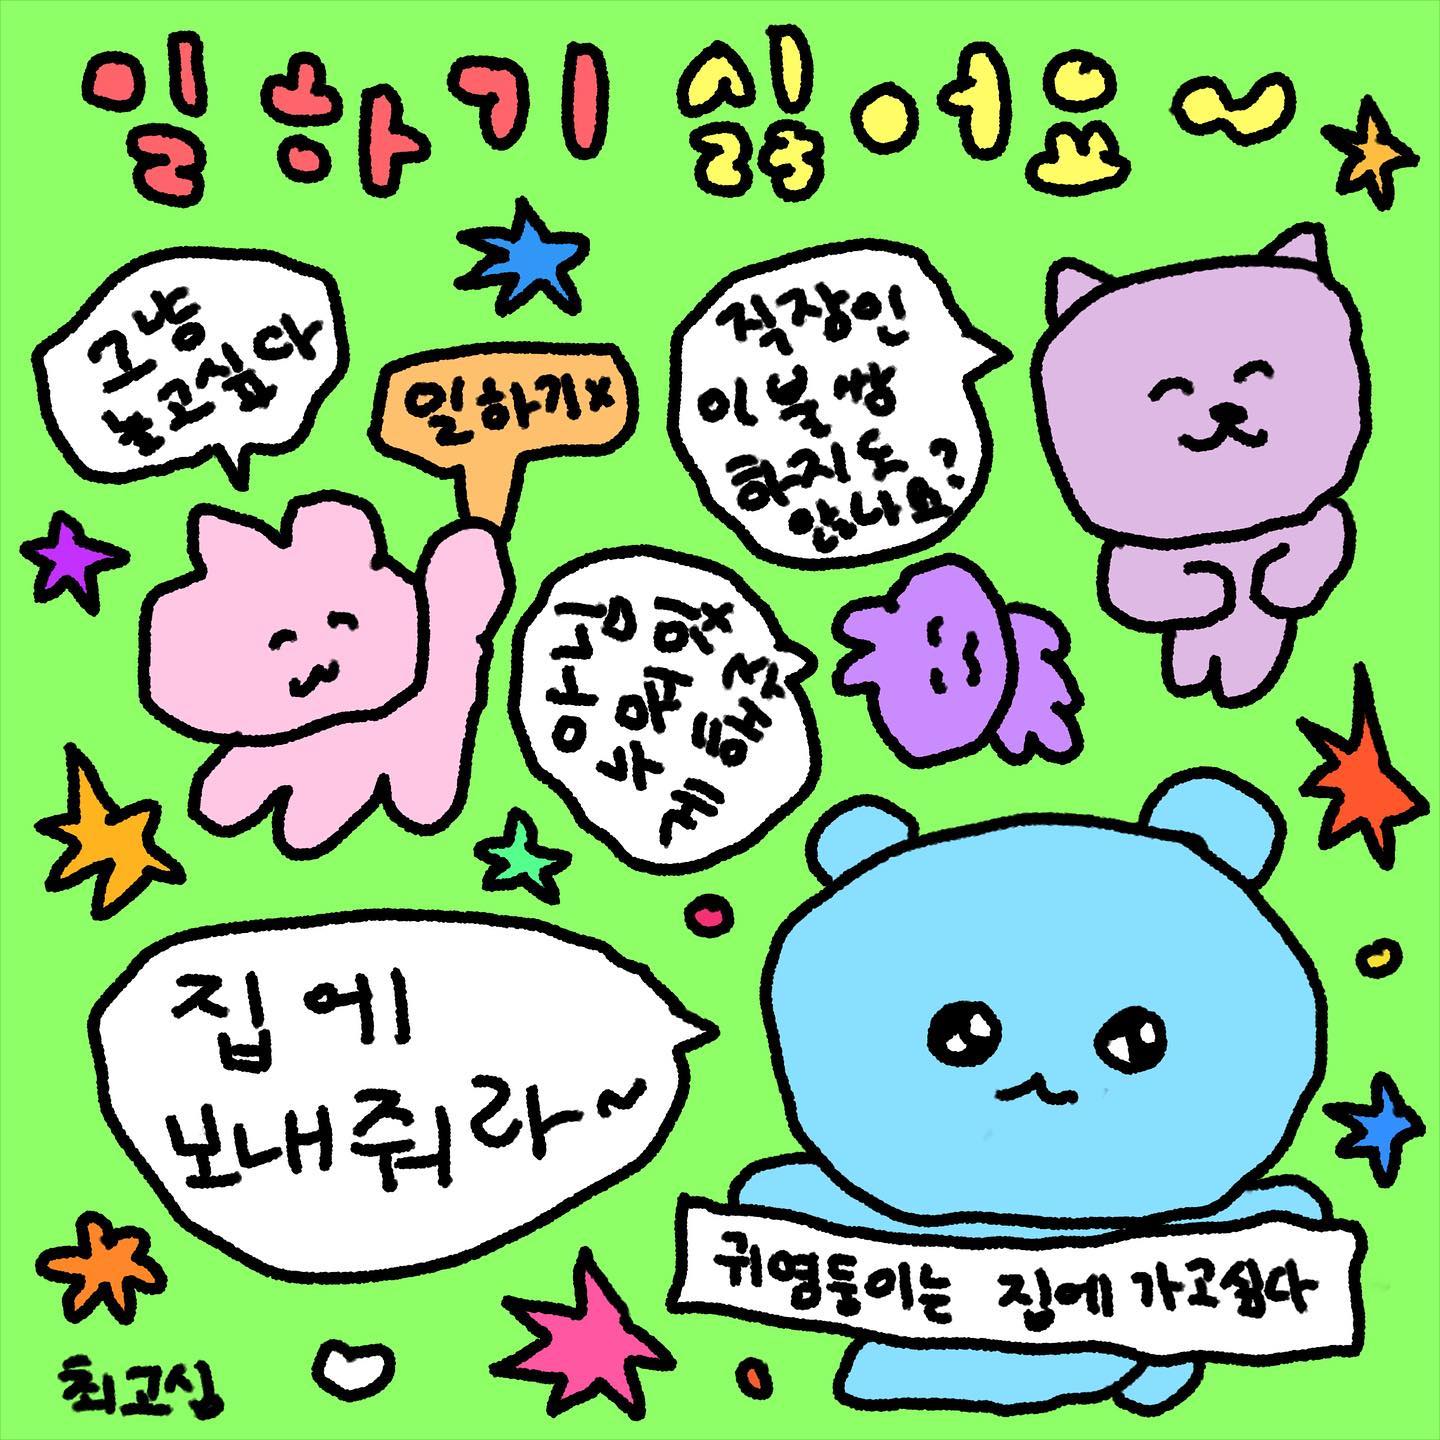 일하기 싫어요~
그냥
놀고싶다
일하기x
직장인
이불쌍
하지도
않나요?
집에
보내줘라~
귀염둥이는 집에 가고싶다
최고심